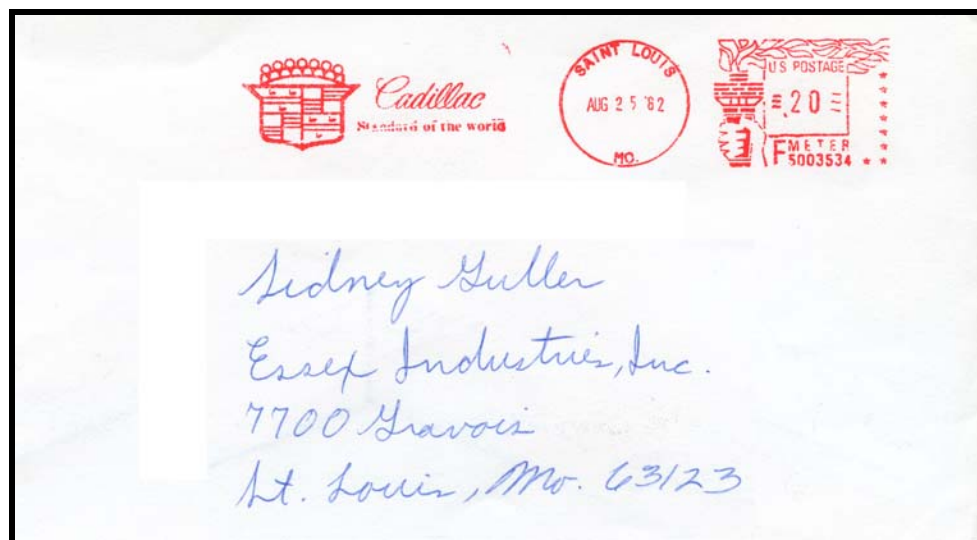 Cadillac
Standard of the world
SAINT LOUIS
AUG 25 '82
MO.
U S POSTAGE
.20
METER
F 5003534
Sidney Guller
Essex Industries, Inc.
7700 Gravois
St. Louis, Mo. 63123